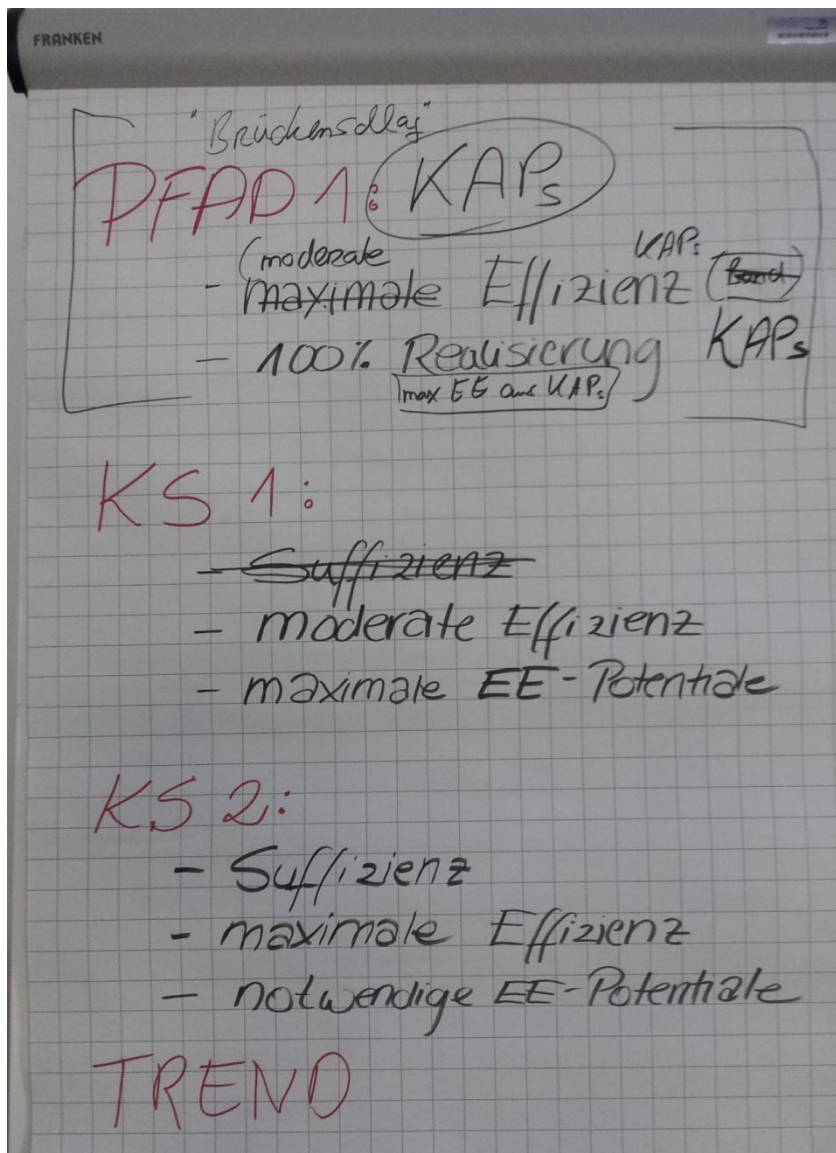 FRANKEN
"Brückenschlag"
PFAD 1: KAPs
(moderate KAPs
- maximale Effizienz (Band)
- 100% Realisierung KAPs
max EE aus KAPs
KS 1:
- Suffizienz
- moderate Effizienz
- maximale EE-Potentiale
KS 2:
- Suffizienz
- maximale Effizienz
- notwendige EE-Potentiale
TREND